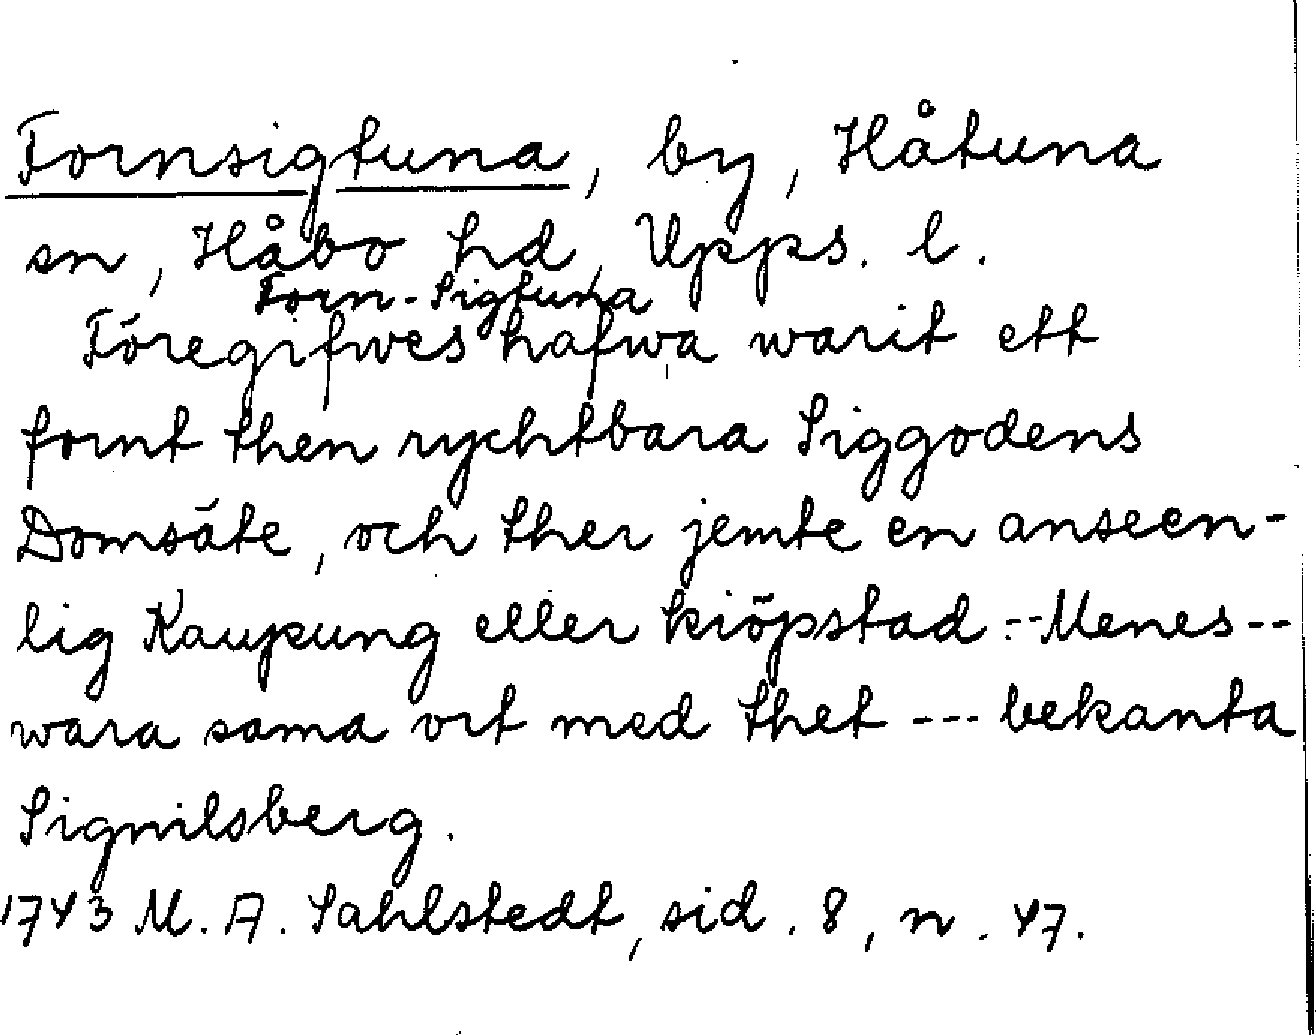 Fornsigtuna, by, Håtuna
sn, Håbo hd, Upps. l.
Forn-Sigtuna
Föregifwes hafwa warit ett
fornt then rychtbara Siggodens
Domsäte, och ther jemte en anseen-
lig Kaupung eller kiöpstad.--Menes--
wara sama ort med thet --- bekanta
Signilsberg.
1743 M. A. Sahlstedt, sid. 8, n. 47.